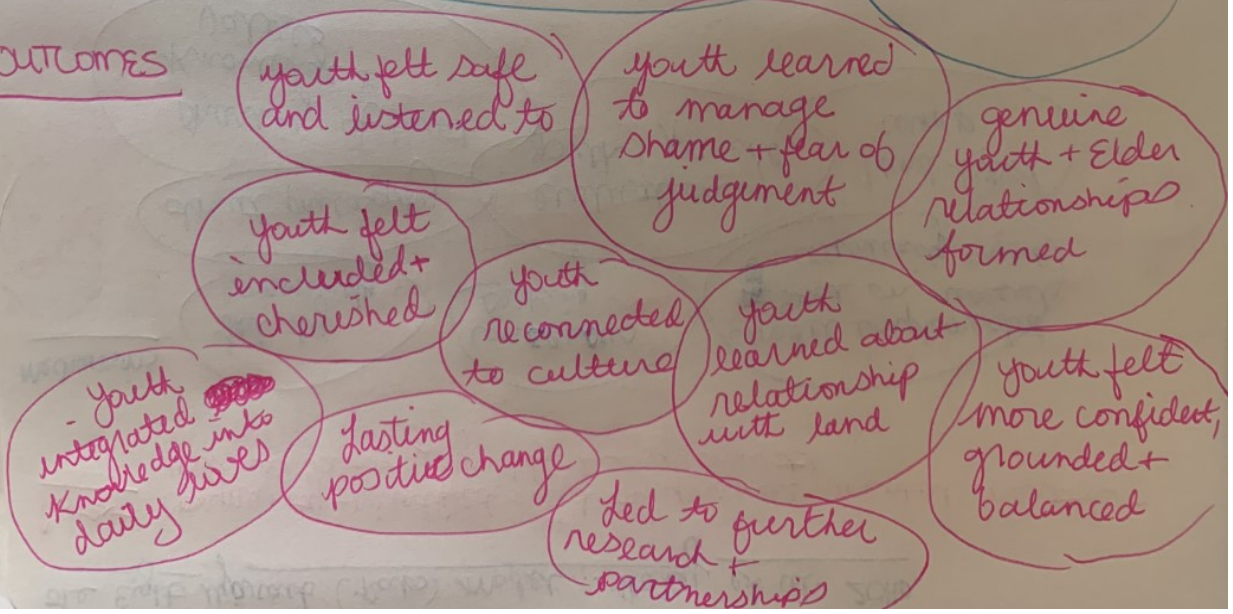 OUTCOMES
youth felt safe
and listened to
youth learned
to manage
shame + fear of
judgement
genuine
youth + Elder
relationships
formed
youth felt
included +
cherished
youth
reconnected
to culture
youth
learned about
relationship
with land
youth felt
more confident,
grounded +
balanced
youth
integrated
knowledge into
daily lives
Lasting
positive change
Led to further
research +
partnerships